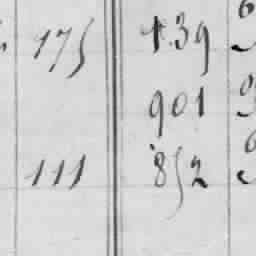 175 439
901
111 852